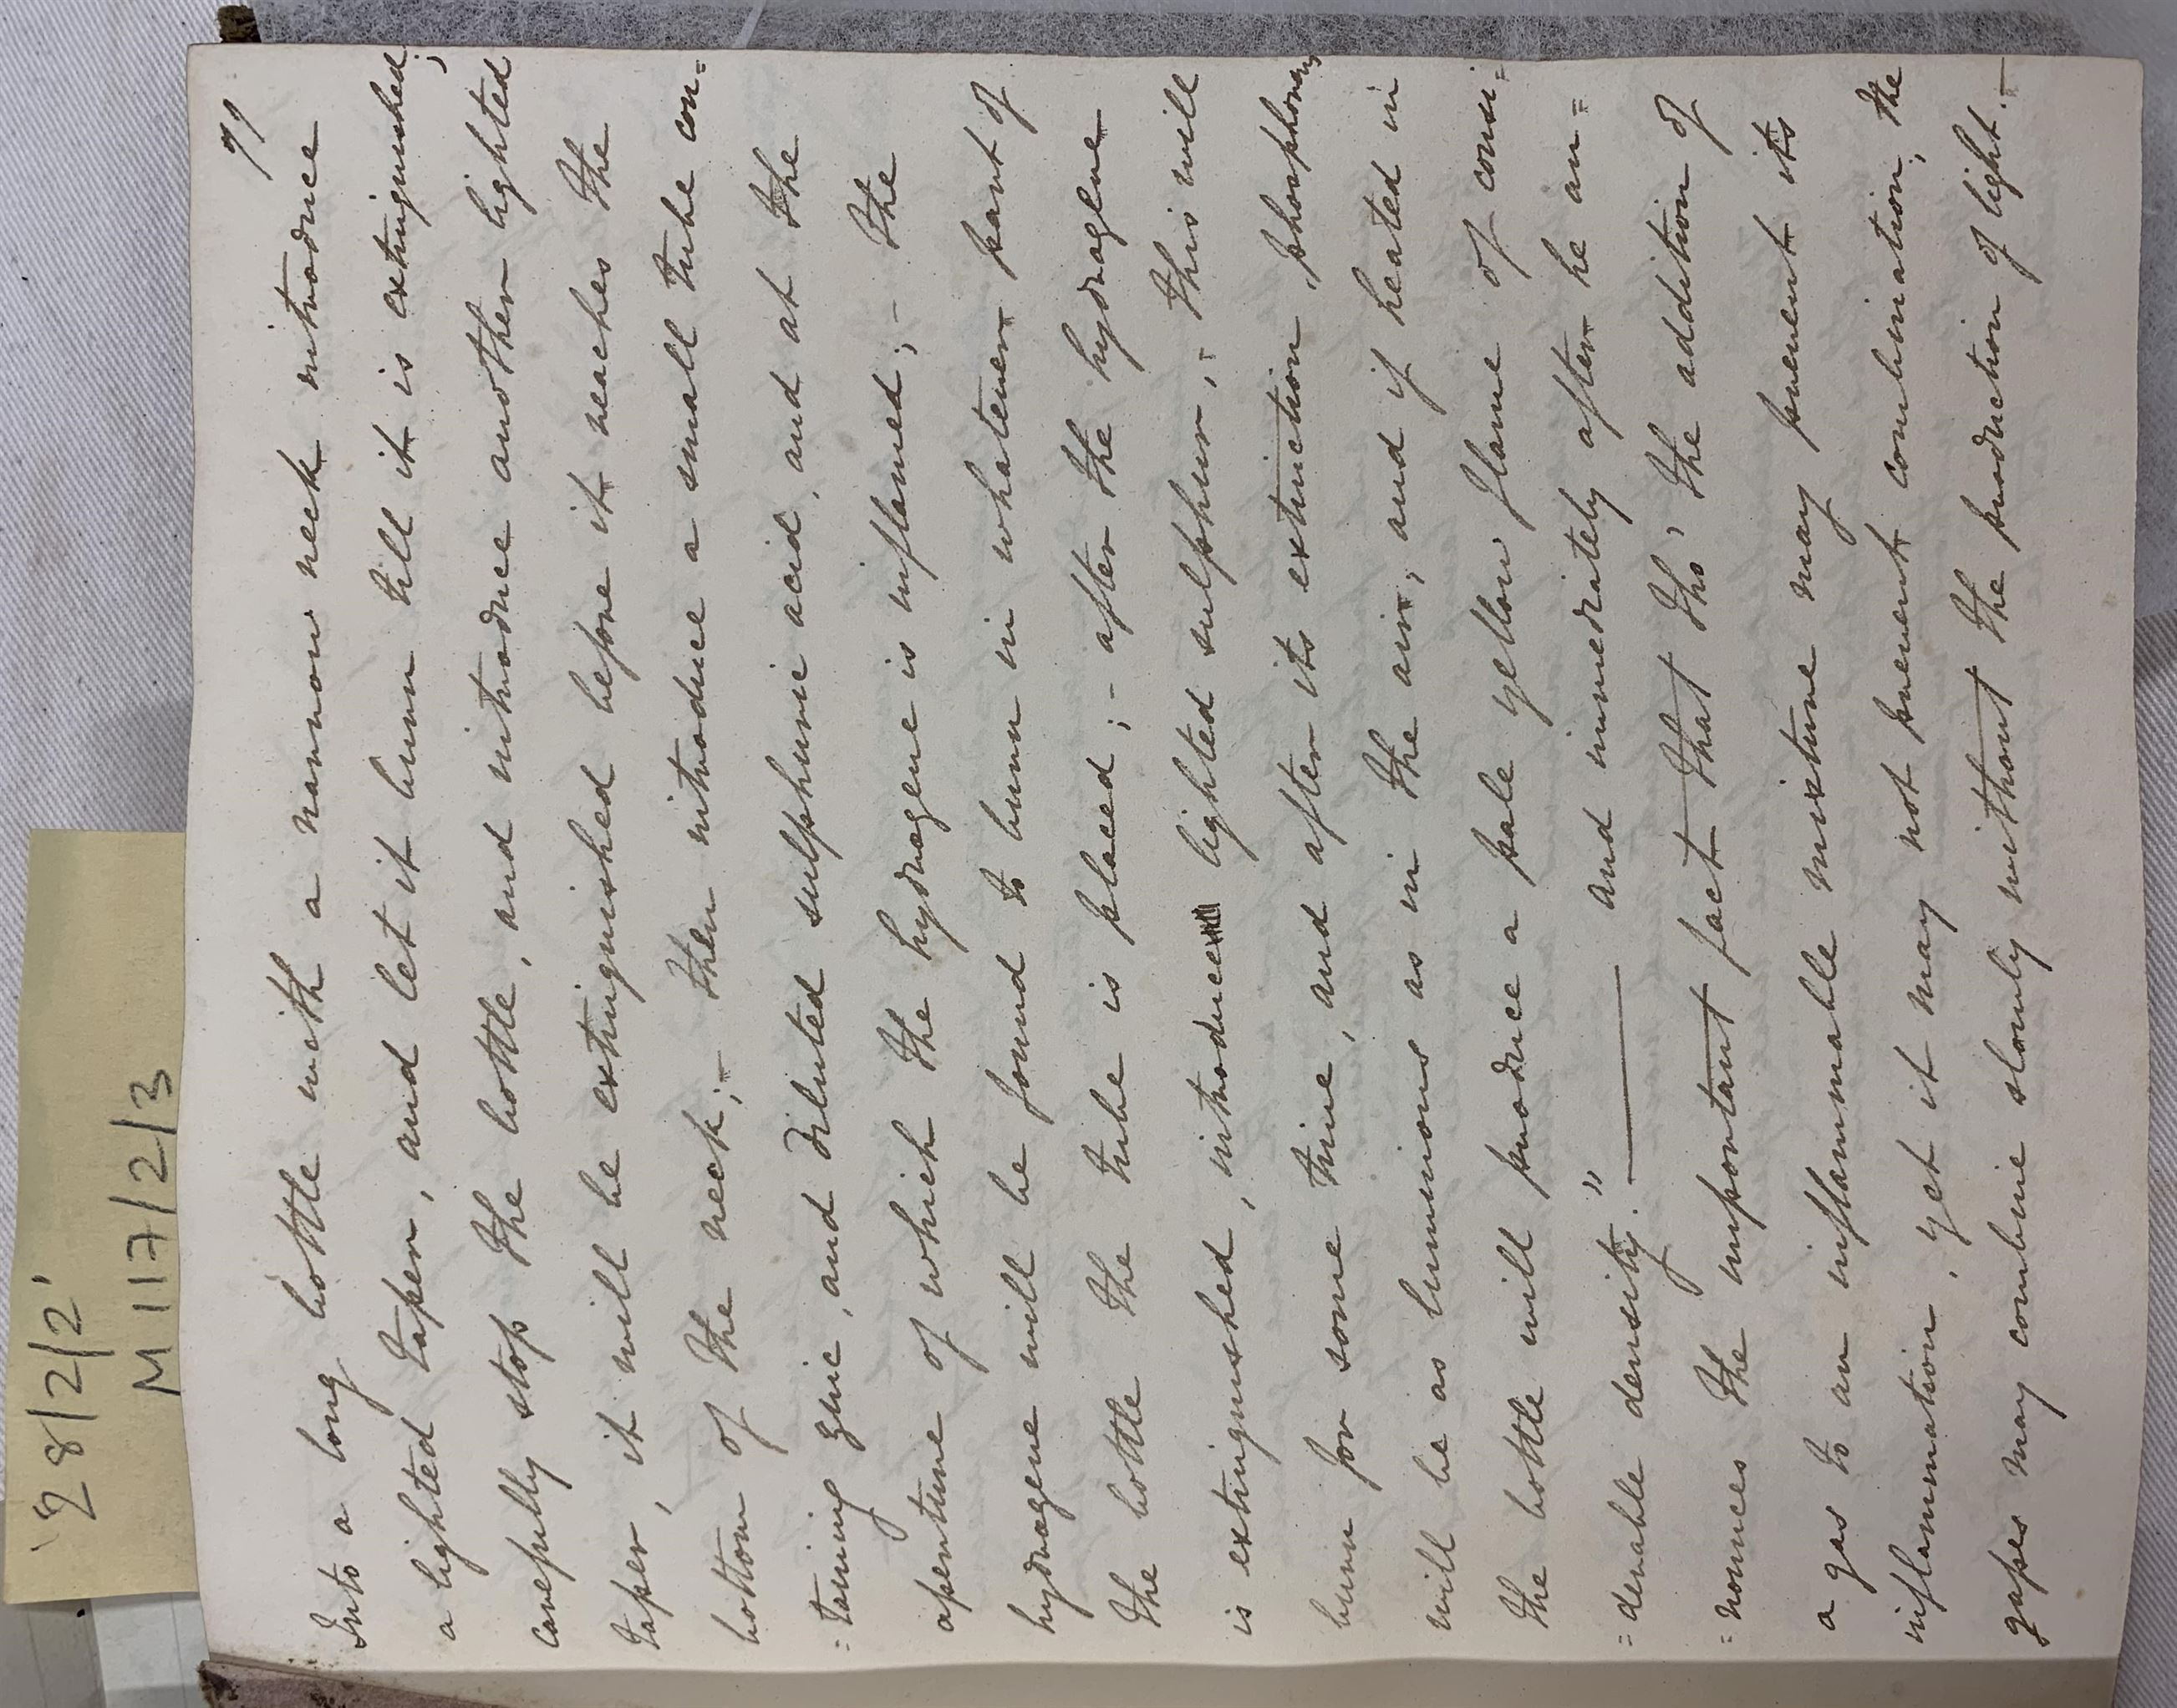 '28/2/2'
M 117/2/3
71
Into a long bottle with a narrow neck introduce
a lighted taper, and let it burn till it is extinguished;
carefully stop the bottle, and introduce another lighted
taper, it will be extinguished before it reaches the
bottom of the neck; - then introduce a small tube con=
=taining zinc, and diluted sulphuric acid, and at the
aperture of which the hydrogene is inflamed; - the
hydrogene will be found to burn in whatever part of
the bottle the tube is placed; - after the hydrogene
is extinguished, introduce lighted sulphur, - this will
burn for some time, and after its extinction, phosphorus
will be as luminous as in the air; and if heated in
the bottle will produce a pale yellow flame of consi=
=derable density." ——— and immediately after he an=
=nounces the important fact that tho' the addition of
a gas to an inflammable mixture may prevent its
inflammation, yet it may not prevent combination, the
gases may combine slowly without the production of light. -